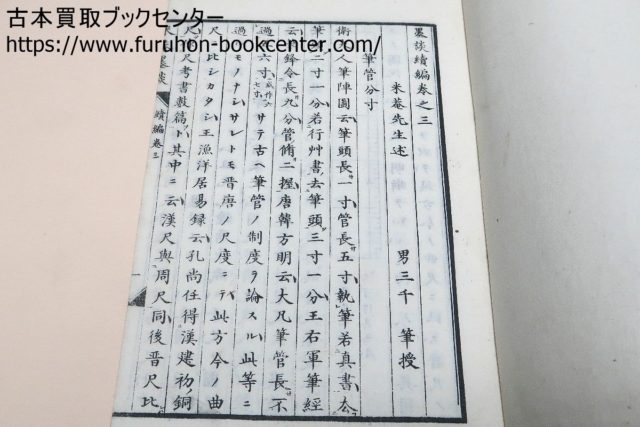 古本買取ブックセンター
https://www.furuhon-bookcenter.com/
墨談續編卷之三
米菴先生述　男三千　筆授
筆管分寸
衛夫人筆陣圖云筆頭長一寸管長五寸執筆若真書去
筆頭二寸一分若行艸書去筆頭三寸一分王右軍筆經
云鋒令長九分管脩二握唐韓方明云大凡筆管長不
過六寸或作六七寸サテ古ヘ筆管ノ制度ヲ論スル此等ニ
過ルモノナシサレトモ晉唐ノ尺度ニテハ此方今ノ曲
尺ニ比シカタシ王漁洋居易録云孔尚任得漢建初銅
尺考書數篇ト其中ニ云漢尺與周尺同後晉尺比
墨談　續編卷三